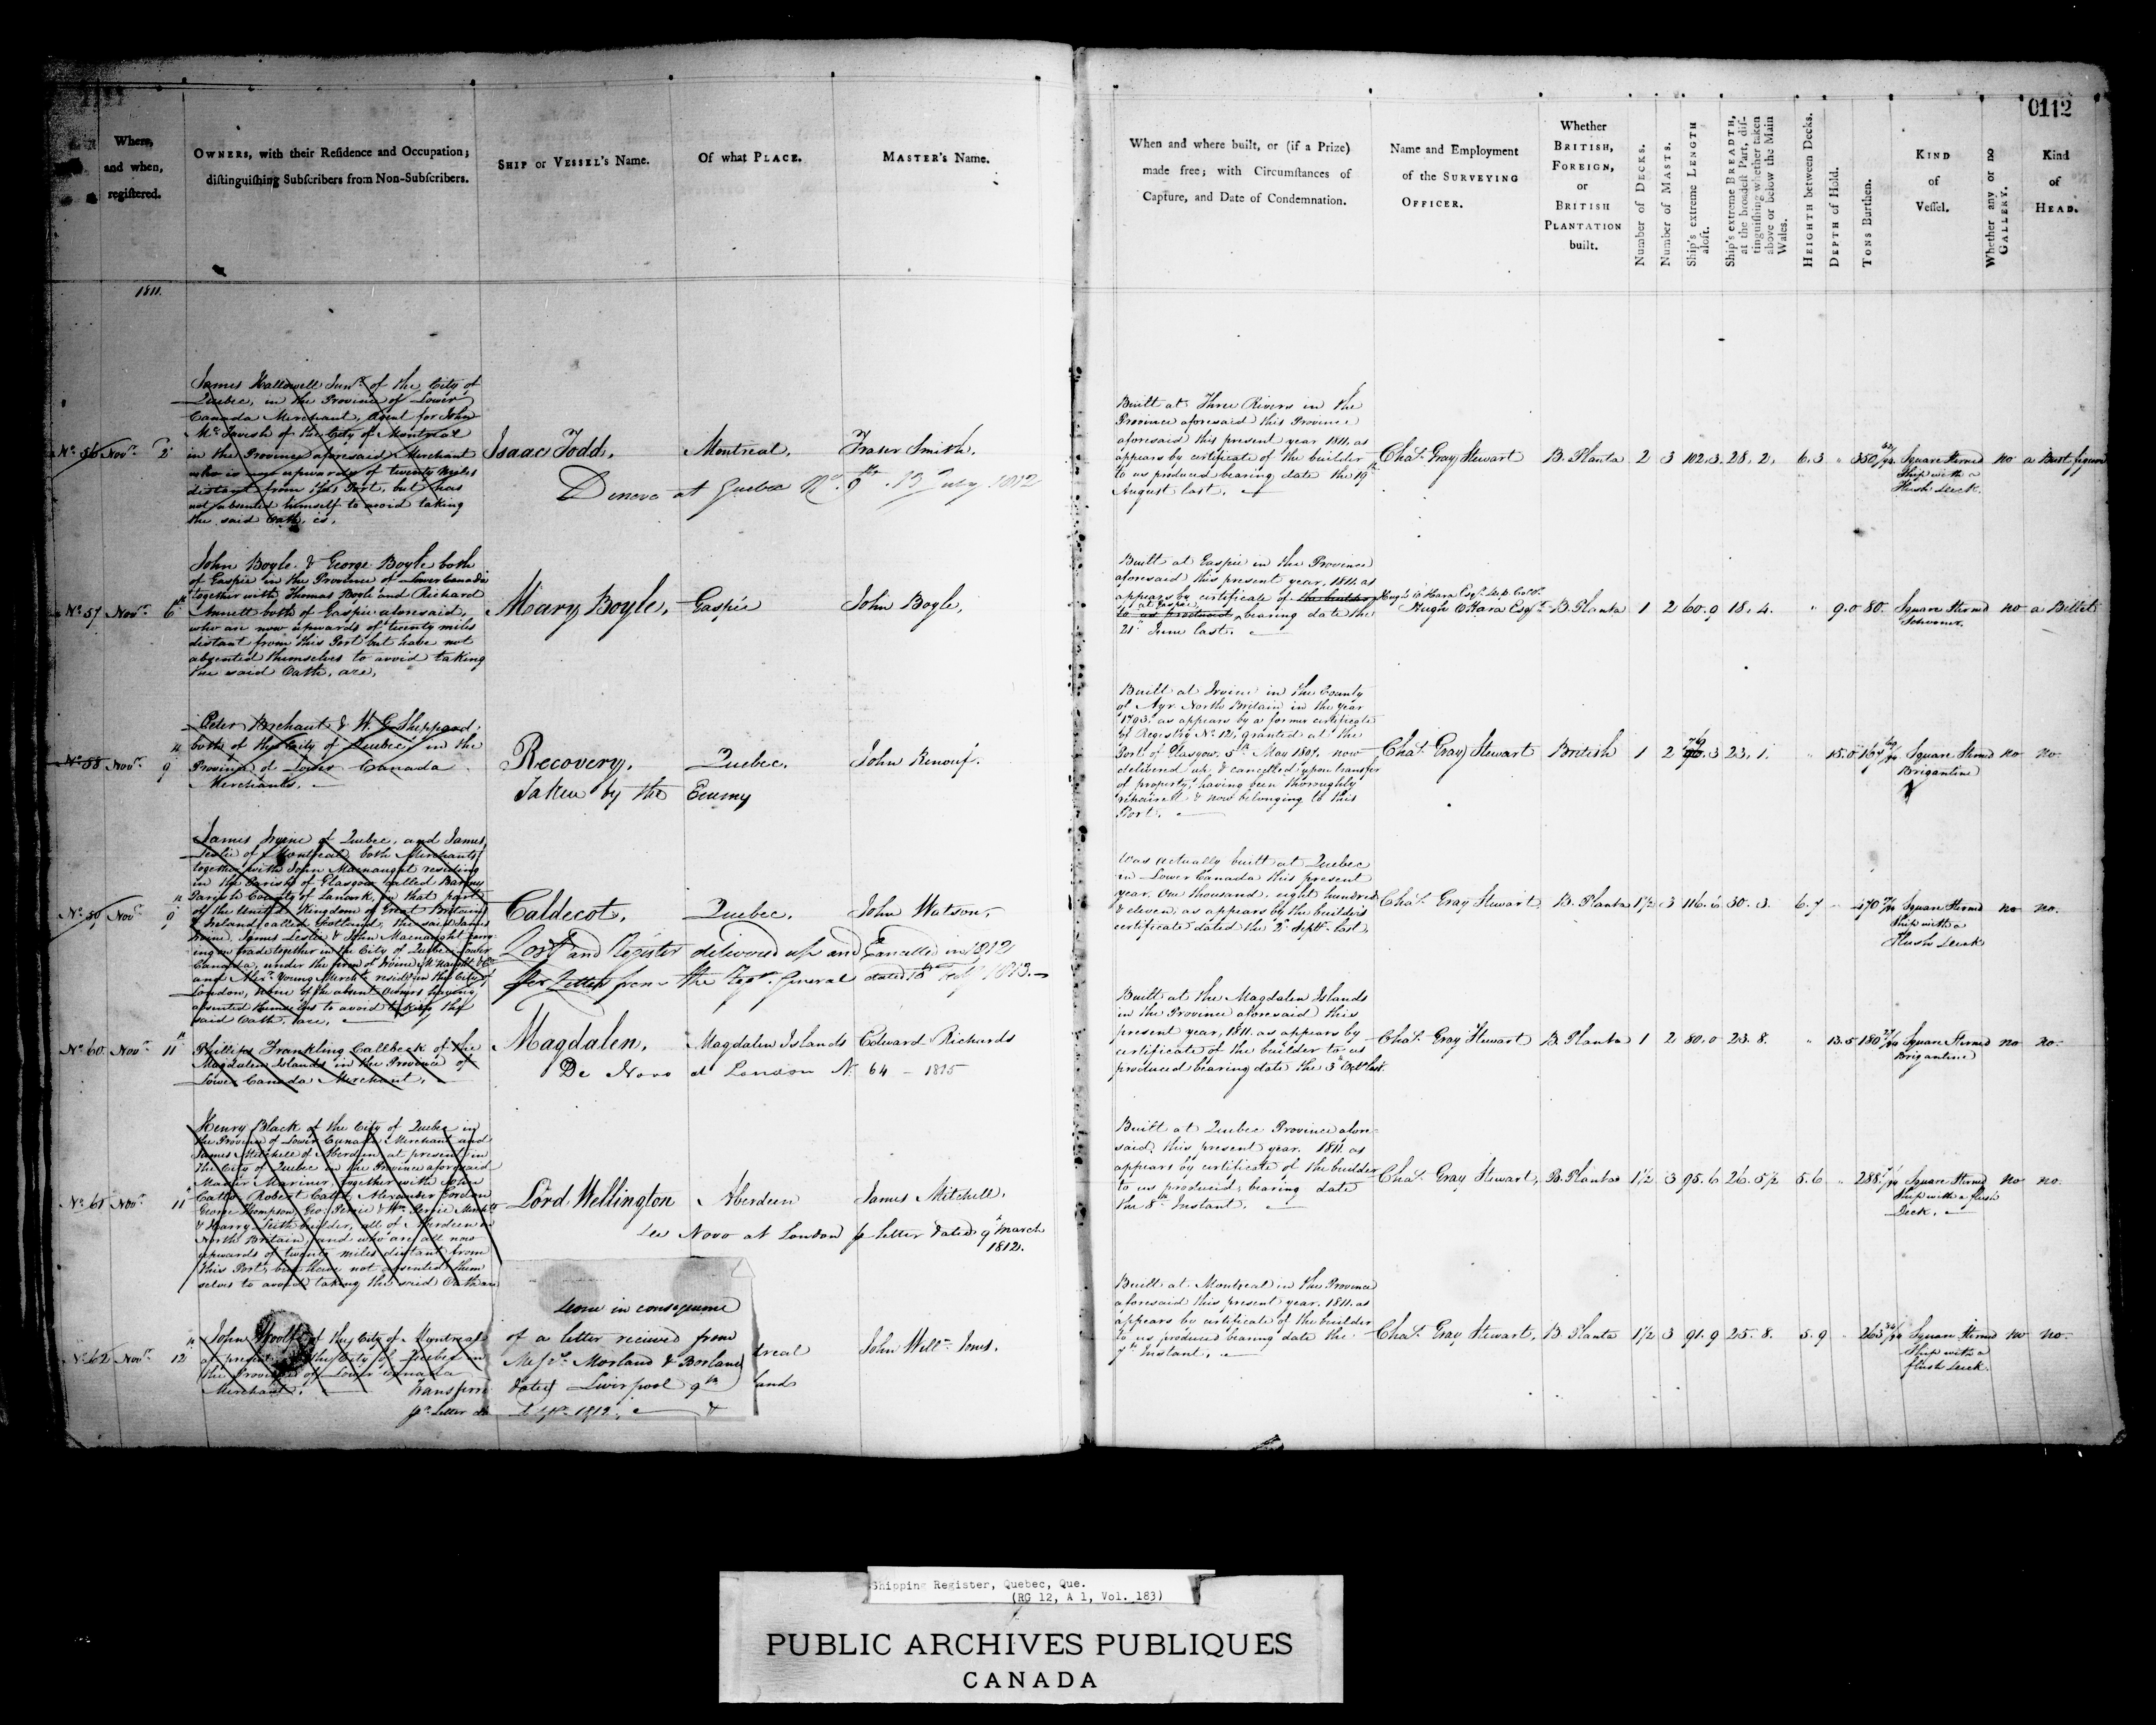 0112
Where,
and when,
registered.
OWNERS, with their Residence and Occupation;
distinguishing Subscribers from Non-Subscribers.
SHIP or VESSEL's Name.
Of what PLACE.
MASTER's Name.
When and where built, or (if a Prize)
made free; with Circumstances of
Capture, and Date of Condemnation.
Name and Employment
of the SURVEYING
OFFICER.
Whether
BRITISH,
FOREIGN,
or
BRITISH
PLANTATION
built.
Number of DECKS.
Number of MASTS.
Ship's extreme LENGTH
aloft.
Ship's extreme BREADTH,
at the broadest Part, dis-
tinguishing whether taken
above or below the Main
Wales.
HEIGHTH between Decks.
DEPTH of Hold.
TONS Burthen.
KIND
of
Vessel.
Whether any or no
GALLERY.
Kind
of
HEAD.
1811.
No. 56 Novr. 2d
James Hallowell Junr. of the City of
Quebec, in the Province of Lower
Canada Merchant, Agent for John
McTavish of the City of Montreal
in the Province aforesaid, Merchant
who is now upwards of twenty miles
distant from this Port, but has
not absented himself to avoid taking
the said Oath, is,
Isaac Todd,
Montreal,
Fraser Smith,
Denovo at Quebec No. 9 13 July 1812
Built at Three Rivers in the
Province aforesaid this Province
aforesaid this present year 1811, as
appears by certificate of the builder
to us produced bearing date the 19th
August last.
Chas. Gray Stewart
B. Planta 2 3 102.3. 28. 2. 6.3 " 350 /94
Square Sternd
Ship with a
Flush Deck.
no a Bust figure
No. 57 Novr. 6th
John Boyle & George Boyle both
of Gaspie in the Province of Lower Canada
together with Thomas Boyle and Richard
Annett both of Gaspie aforesaid,
who are now upwards of twenty miles
distant from this Port but have not
absented themselves to avoid taking
the said Oath, are,
Mary Boyle,
Gaspie
John Boyle,
Built at Gaspie in the Province
aforesaid this present year, 1811. as
appears by certificate of the builder
at Gaspie
to us produced, bearing date the
21st June last.
Hugh O Hara Esqr. Dep. Colr.
Hugh O Hara Esqr.
B. Planta 1 2 60.9 18. 4. " 9.0 80.
Square Sternd
Schooner.
no a Billet
No. 58 Novr. 9th
Peter Brehaut & W. G. Sheppard,
both of the City of Quebec, in the
Province of Lower Canada
Merchants.
Recovery,
Quebec,
John Renouf.
Taken by the Enemy
Built at Irvine in the County
of Ayr North Britain in the year
1793. as appears by a former certificate
of Registry No. 12, granted at the
Port of Glasgow, 5th May 1807. now
delivered up, & cancelled upon transfer
of property, having been thoroughly
repaired & now belonging to this
Port.
Chas. Gray Stewart
British 1 2 .3 23. 1. " 15.0
Square Sternd
Brigantine
no no.
No. 59 Novr. 9th
James Irvine of Quebec, and James
Leslie of Montreal both Merchants
together with John Macnaught residing
in the Parish of Glasgow called Barony
Parish County of Lanark, in that part
of the United Kingdom of Great Britain
& Ireland called Scotland, the said James
Irvine, James Leslie & John Macnaught carry-
ing on trade together in the City of Quebec Lower
Canada, under the firm of Irvine McNaught & Co
and Young Mercht. resid. in the City of
London, none of the absent Owners having
absented themselves to avoid taking the
said Oath, are,
Caldecot,
Quebec,
John Watson,
Lost and Register delivered up and Cancelled in 1812
per Letter from the Regr. General dated 1813.
Was actually built at Quebec
in Lower Canada this present
year, One thousand, eight hundred
& eleven, as appears by the builders
certificate dated the 2d Septr. last.
Chas. Gray Stewart
B. Planta 1½ 3 116. 6 30. 3. 6.7 470 /94
Square Sternd
Ship with a
Flush Deck
no no.
No. 60 Novr. 11th
Phillips Frankling Callbeck of the
Magdalen Islands in the Province of
Lower Canada Merchant.
Magdalen,
Magdalen Islands
Edward Richards
De Novo at London No. 64 - 1815
Built at the Magdalen Islands
in the Province aforesaid this
present year, 1811. as appears by
certificate of the builder to us
produced bearing date the 3d Octr. last.
Chas. Gray Stewart
B. Planta 1 2 80.0 23. 8. " 13.5 180 /94
Square Sternd
Brigantine
no no.
No. 61 Novr. 11th
Henry Black of the City of Quebec in
the Province of Lower Canada Merchant and
James Mitchell of Aberdeen at present in
the City of Quebec in the Province aforesaid
Master Mariner, together with John
Catto, Robert Catto, Alexander Gordon
George Thompson, Geo. Pirrie & Wm. Pirrie Merchts.
& Harry Leith builder, all of Aberdeen in
North Britain, and who are all now
upwards of twenty miles distant from
this Port, but have not absented them
selves to avoid taking the said Oath are
Lord Wellington
Aberdeen
James Mitchell,
De Novo at London p letter dated 9th March
1812.
Built at Quebec Province afore-
said, this present year, 1811. as
appears by certificate of the builder
to us produced, bearing date
the 8th Instant.
Chas. Gray Stewart,
B. Planta 1½ 3 95.6 26. 5½ 5.6 " 288 /94
Square Sternd
Ship with a flush
Deck.
no no.
No. 62 Novr. 12th
John Woolf of the City of Montreal
at present in the City of Quebec in
the Province of Lower Canada
Merchant.
Transferr
pr. Letter da
done in consequence
of a letter received from
Messrs. Morland & Borland
dated Liverpool 9th
Septr. 1812.
treal
land
John Willm. Jones.
Built at Montreal in the Province
aforesaid this present year, 1811. as
appears by certificate of the builder
to us produced bearing date the
7th Instant.
Chas. Gray Stewart,
B. Planta 1½ 3 91.9 25. 8. 5.9 263 /94
Square Sternd
Ship with a
flush Deck.
no no.
Shipping Register, Quebec, Que.
(RG 12, A 1, Vol. 183)
PUBLIC ARCHIVES PUBLIQUES
CANADA